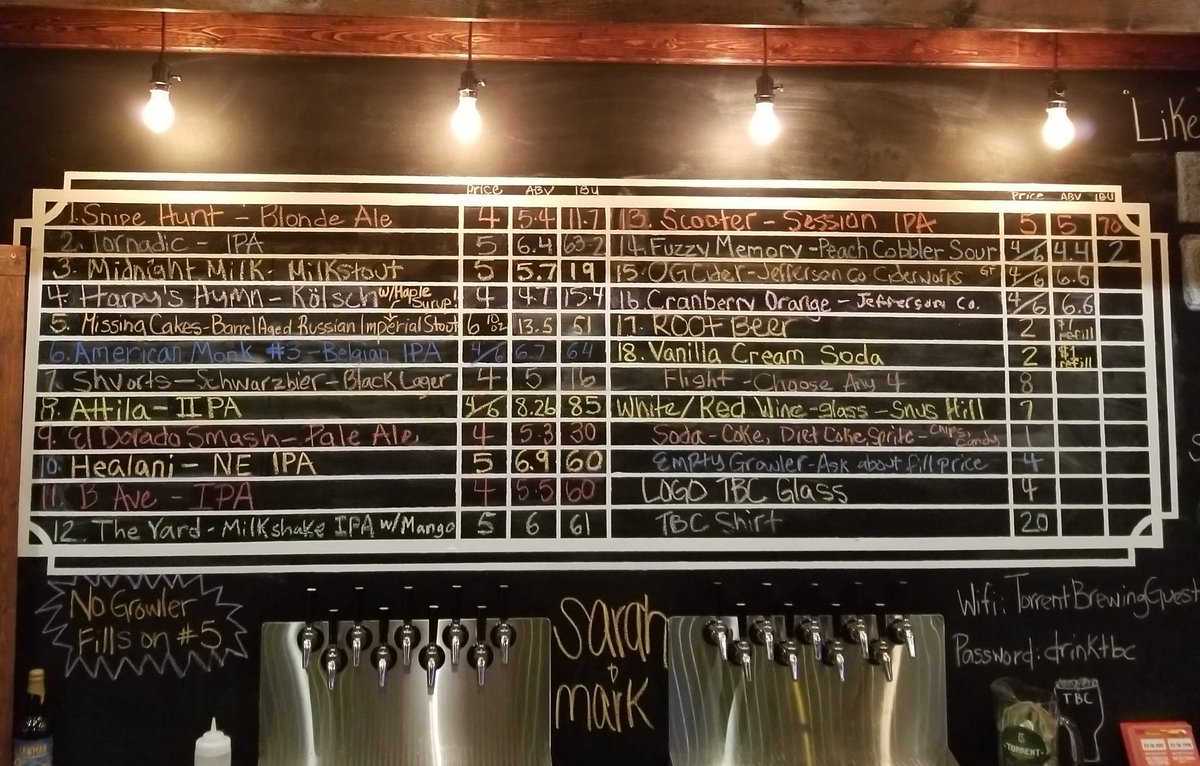 "Like
Price ABV IBU
1. Snipe Hunt - Blonde Ale 4 5.4 11.7
2. Tornadic - IPA 5 6.4 63.2
3. Midnight Milk - Milkstout 5 5.7 19
4. Harpy's Hymn - Kölsch w/Maple Syrup! 4 4.7 15.4
5. Missing Cakes - Barrel Aged Russian Imperial Stout 6 10oz 13.5 51
6. American Monk #3 - Belgian IPA 4/6 6.7 64
7. Shvorts - Schwarzbier - Black Lager 4 5 16
8. Attila - IIPA 4/6 8.26 85
9. El Dorado Smash - Pale Ale 4 5.3 30
10. Healani - NE IPA 5 6.9 60
11. B Ave - IPA 4 5.5 60
12. The Yard - Milkshake IPA w/Mango 5 6 61
Price ABV IBU
13. Scooter - Session IPA 5 5 70
14. Fuzzy Memory - Peach Cobbler Sour 4/6 4.4 2
15. OG Cider - Jefferson Co. Ciderworks GF 4/6 6.6
16. Cranberry Orange - Jefferson Co. 4/6 6.6
17. Root Beer 2 $1 refill
18. Vanilla Cream Soda 2 $1 refill
Flight - Choose Any 4 8
White/Red Wine - glass - Snus Hill 7
Soda - Coke, Diet Coke, Sprite - Chips, Candy 1
Empty Growler - Ask about fill price 4
LOGO TBC Glass 4
TBC Shirt 20
No Growler
Fills on #5
Sarah
&
Mark
Wifi: TorrentBrewingGuest
Password: drinktbc
TBC
TORRENT